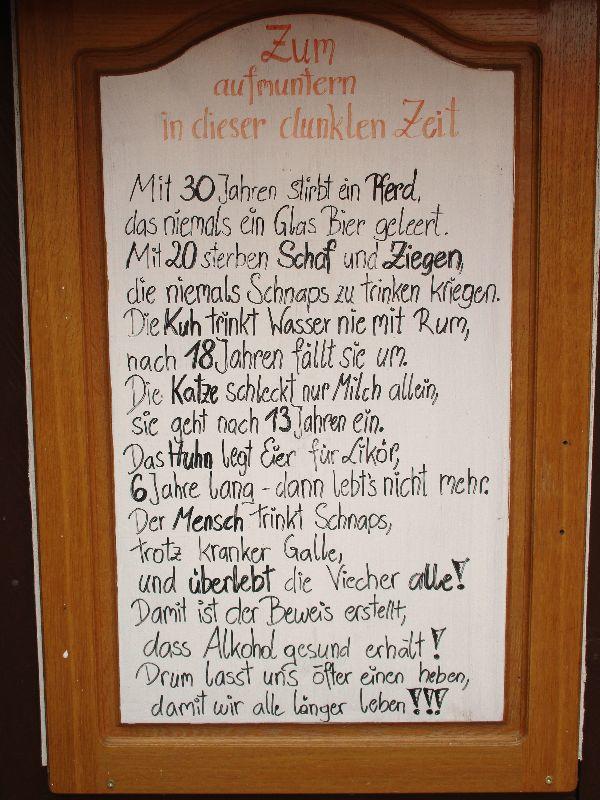 Zum
aufmuntern
in dieser dunklen Zeit
Mit 30 Jahren stirbt ein Pferd,
das niemals ein Glas Bier geleert.
Mit 20 sterben Schaf und Ziegen,
die niemals Schnaps zu trinken kriegen.
Die Kuh trinkt Wasser nie mit Rum,
nach 18 Jahren fällt sie um.
Die Katze schleckt nur Milch allein,
sie geht nach 13 Jahren ein.
Das Huhn legt Eier für Likör,
6 Jahre lang - dann lebt's nicht mehr.
Der Mensch trinkt Schnaps,
trotz kranker Galle,
und überlebt die Viecher alle!
Damit ist der Beweis erstellt,
dass Alkohol gesund erhält!
Drum lasst uns öfter einen heben,
damit wir alle länger leben!!!